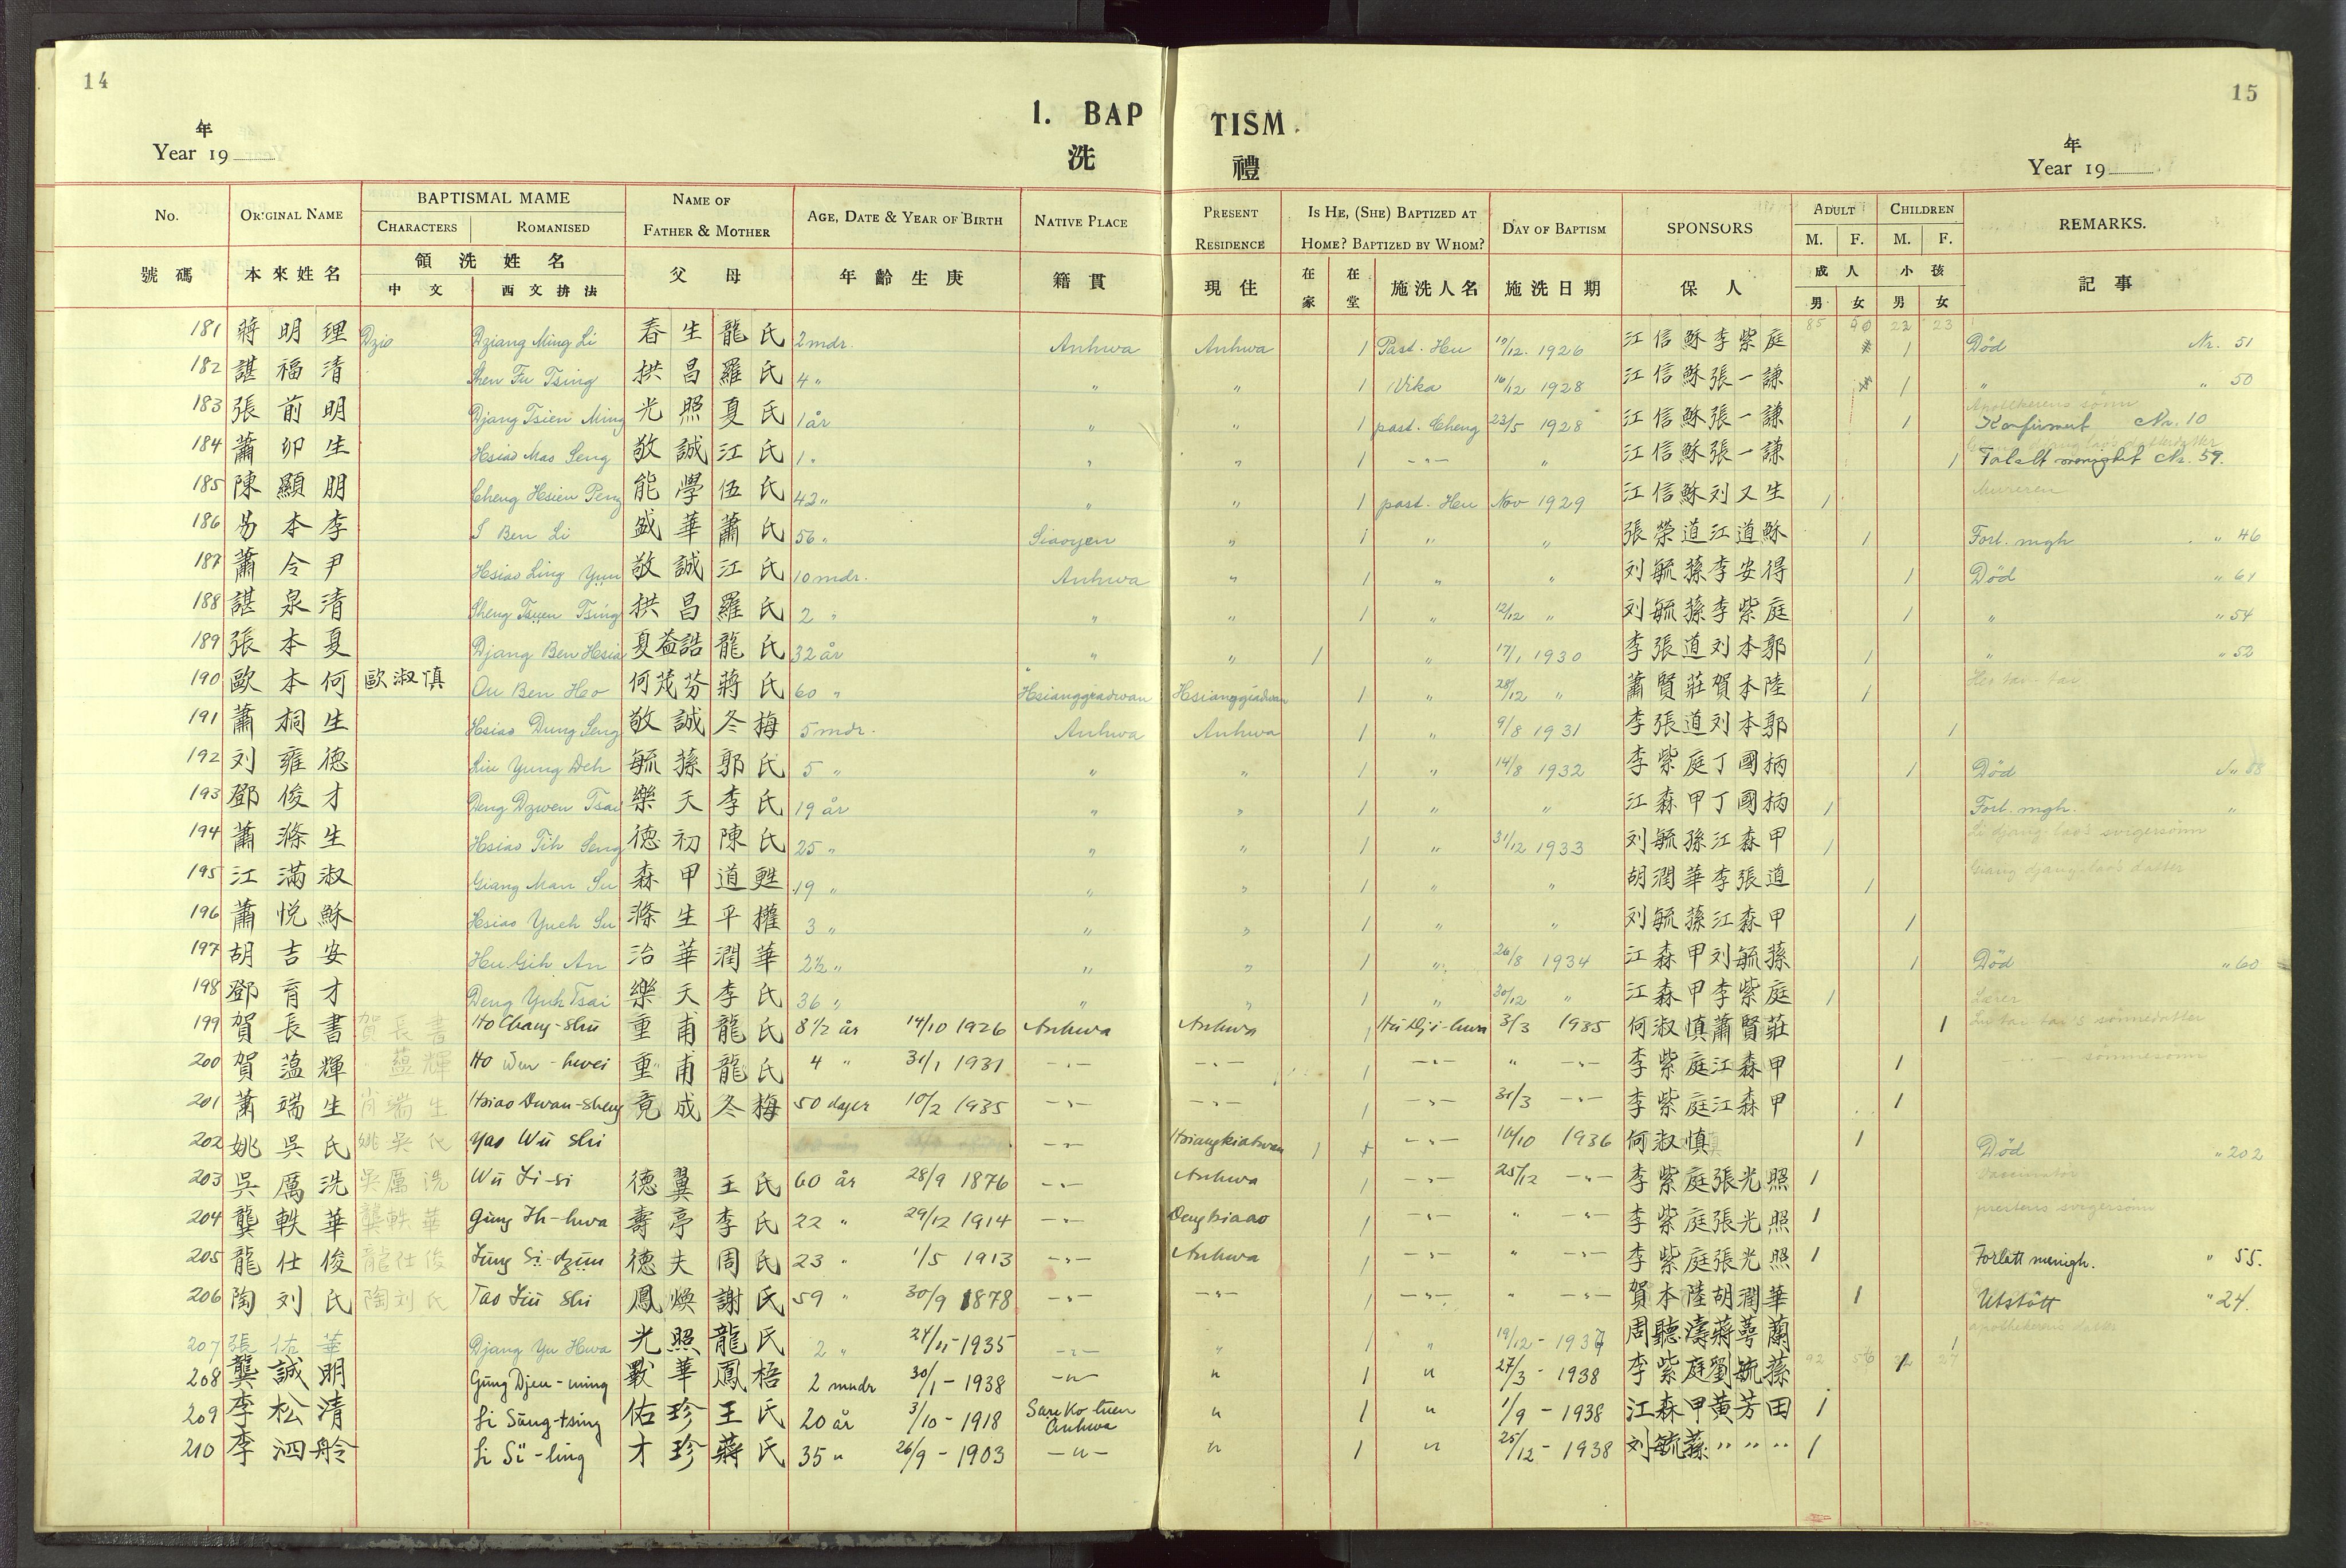 14
15
1. BAP TISM.
洗 禮
年
Year 19
年
Year 19
No. ORIGINAL NAME BAPTISMAL MAME NAME OF FATHER & MOTHER AGE, DATE & YEAR OF BIRTH NATIVE PLACE PRESENT RESIDENCE IS HE, (SHE) BAPTIZED AT HOME? BAPTIZED BY WHOM? DAY OF BAPTISM SPONSORS ADULT CHILDREN REMARKS.
CHARACTERS ROMANISED M. F. M. F.
號碼 本來姓名 領洗姓名 父母 年齡生庚 籍貫 現住 在家 在堂 施洗人名 施洗日期 保人 成人 小孩 記事
中文 西文拼法 男 女 男 女
181 蔣明理 Dziang Ming Li 春生 龍氏 2 mdr. Anhwa Anhwa 1 Past. Hu 1926 江信穌李紫庭 1 Död Nr. 51
182 諶福清 Shen Fu Tsing 拱昌 羅氏 4 " " " 1 Vika 16/12 1928 江信穌張一謙 1 " " 50
183 張前明 Djang Tsien Ming 光照 夏氏 1 år " " 1 past. Cheng 23/5 1928 江信穌張一謙 1 Konfirmert Nr. 10
184 蕭卯生 Hsiao Mao Seng 敬誠 江氏 1 " " " 1 - " - " 江信穌張一謙 1 Forlatt menighet Nr. 59.
185 陳顯朋 Cheng Hsien Peng 能學 伍氏 43 " " " 1 past. Hu Nov 1929 江信穌刘又生 1 Mureren
186 易本李 I Ben Li 盛華 蕭氏 56 " Siaoyen " 1 " " 張榮道江道穌 1 Forl. mgh " 46
187 蕭令尹 Hsiao Ling Yün 敬誠 江氏 10 mdr. Anhwa " 1 " " 刘毓蓀李安得 1 Död " 61
188 諶泉清 Sheng Tsuen Tsing 拱昌 羅氏 2 " " " 1 " 12/12 " 刘毓蓀李紫庭 1 " " 54
189 張本夏 Djang Ben Hsia 夏益誥 龍氏 32 år " " 1 " 17/1 1930 李張道刘本郭 1 " " 52
190 歐本何 歐淑慎 Ou Ben Ho 何茂芬 蔣氏 60 " Hsianggiadwan Hsianggiadwan 1 " 28/12 " 蕭賢莊賀本陸 1
191 蕭桐生 Hsiao Dung Seng 敬誠 冬梅 5 mdr. Anhwa Anhwa 1 " 9/8 1931 李張道刘本郭 1
192 刘雍德 Liu Yung Deh 毓蓀 郭氏 5 " " " 1 " 14/8 1932 李紫庭丁國柄 1 Död
193 鄧俊才 Deng Dzwen Tsai 樂天 李氏 19 år " " 1 " " 江森甲丁國柄 1 Forl. mgh. "
194 蕭滌生 Hsiao Tih Seng 德初 陳氏 25 " " " 1 " 31/12 1933 刘毓孫江森甲 1 Li djang-lao's svigersönn
195 江滿淑 Giang Man Su 森甲 道甦 19 " " " 1 " " 胡潤華李張道 1 Giang djang-lao's datter
196 蕭悅穌 Hsiao Yueh Su 滌生 平權 3 " " " 1 " " 刘毓蓀江森甲 1
197 胡吉安 Hu Gih An 治華 潤華 2½ " " " 1 " 26/8 1934 江森甲刘毓蓀 1 Död " 60
198 鄧育才 Deng Yuh Tsai 樂天 李氏 36 " " " 1 " 30/12 " 江森甲李紫庭 1 Lærer
199 賀長書 賀長書 Ho Chang-shü 重甫 龍氏 8 1/2 år 14/10 1926 Anhwa Anhwa 1 Hü Dji-hwa 3/3 1935 何淑慎蕭賢莊 1
200 賀蘊輝 蘊輝 Ho Wun-hwei 重甫 龍氏 4 " 31/1 1931 - " - - " - 1 - " - " - " - 李紫庭江森甲 1
201 蕭端生 肖端生 Hsiao Dwan-sheng 竟成 冬梅 50 dager 10/2 1935 - " - - " - 1 - " - 31/3 - " - 李紫庭江森甲 1
202 姚吳氏 姚吳氏 Yao Wü shi - " - Hsiangkiatwan 1 - " - 16/10 1936 何淑慎 1 Död " 202
203 吳厲洗 吳厲洗 Wü Li-si 德翼 王氏 60 år 28/9 1876 - " - Anhwa 1 - " - 25/12 - " - 李紫庭張光照 1
204 龔軼華 龔軼華 Gung Ih-hwa 壽亭 李氏 22 " 29/12 1914 - " - Dengkiaao 1 - " - " - " - 李紫庭張光照 1 presterns svigersönn
205 龍仕俊 龍仕俊 Lung Si-dzün 德夫 周氏 23 " 1/5 1913 - " - Anhwa 1 - " - " - " - 李紫庭張光照 1 Forlatt menigh. " 55.
206 陶刘氏 陶刘氏 Tao Liü shi 鳳煥 謝氏 59 " 30/9 1878 - " - - " - 1 - " - " - " - 賀本陸胡潤華 1 Utstött " 24.
207 張佑華 Djang Yu Hwa 光照 龍氏 2 " 24/11-1935 - " - " 1 " 19/12-1937 周聽濤蔣萼蘭 1
208 龔誠明 Gung Djen-ming 戰華 鳳梧 2 mndr 30/1-1938 - " - " 1 " 27/3-1938 李紫庭劉毓蓀
209 李松清 Li Sung-tsing 佑珍 王氏 20 år 3/10-1918 San Ko tuen Anhwa " 1 " 1/9-1938 江森甲黃芳田 1
210 李泗舲 Li Si-ling 才珍 蔣氏 35 " 26/9-1903 - " - " 1 " 25/12-1938 刘毓蓀 " " " 1